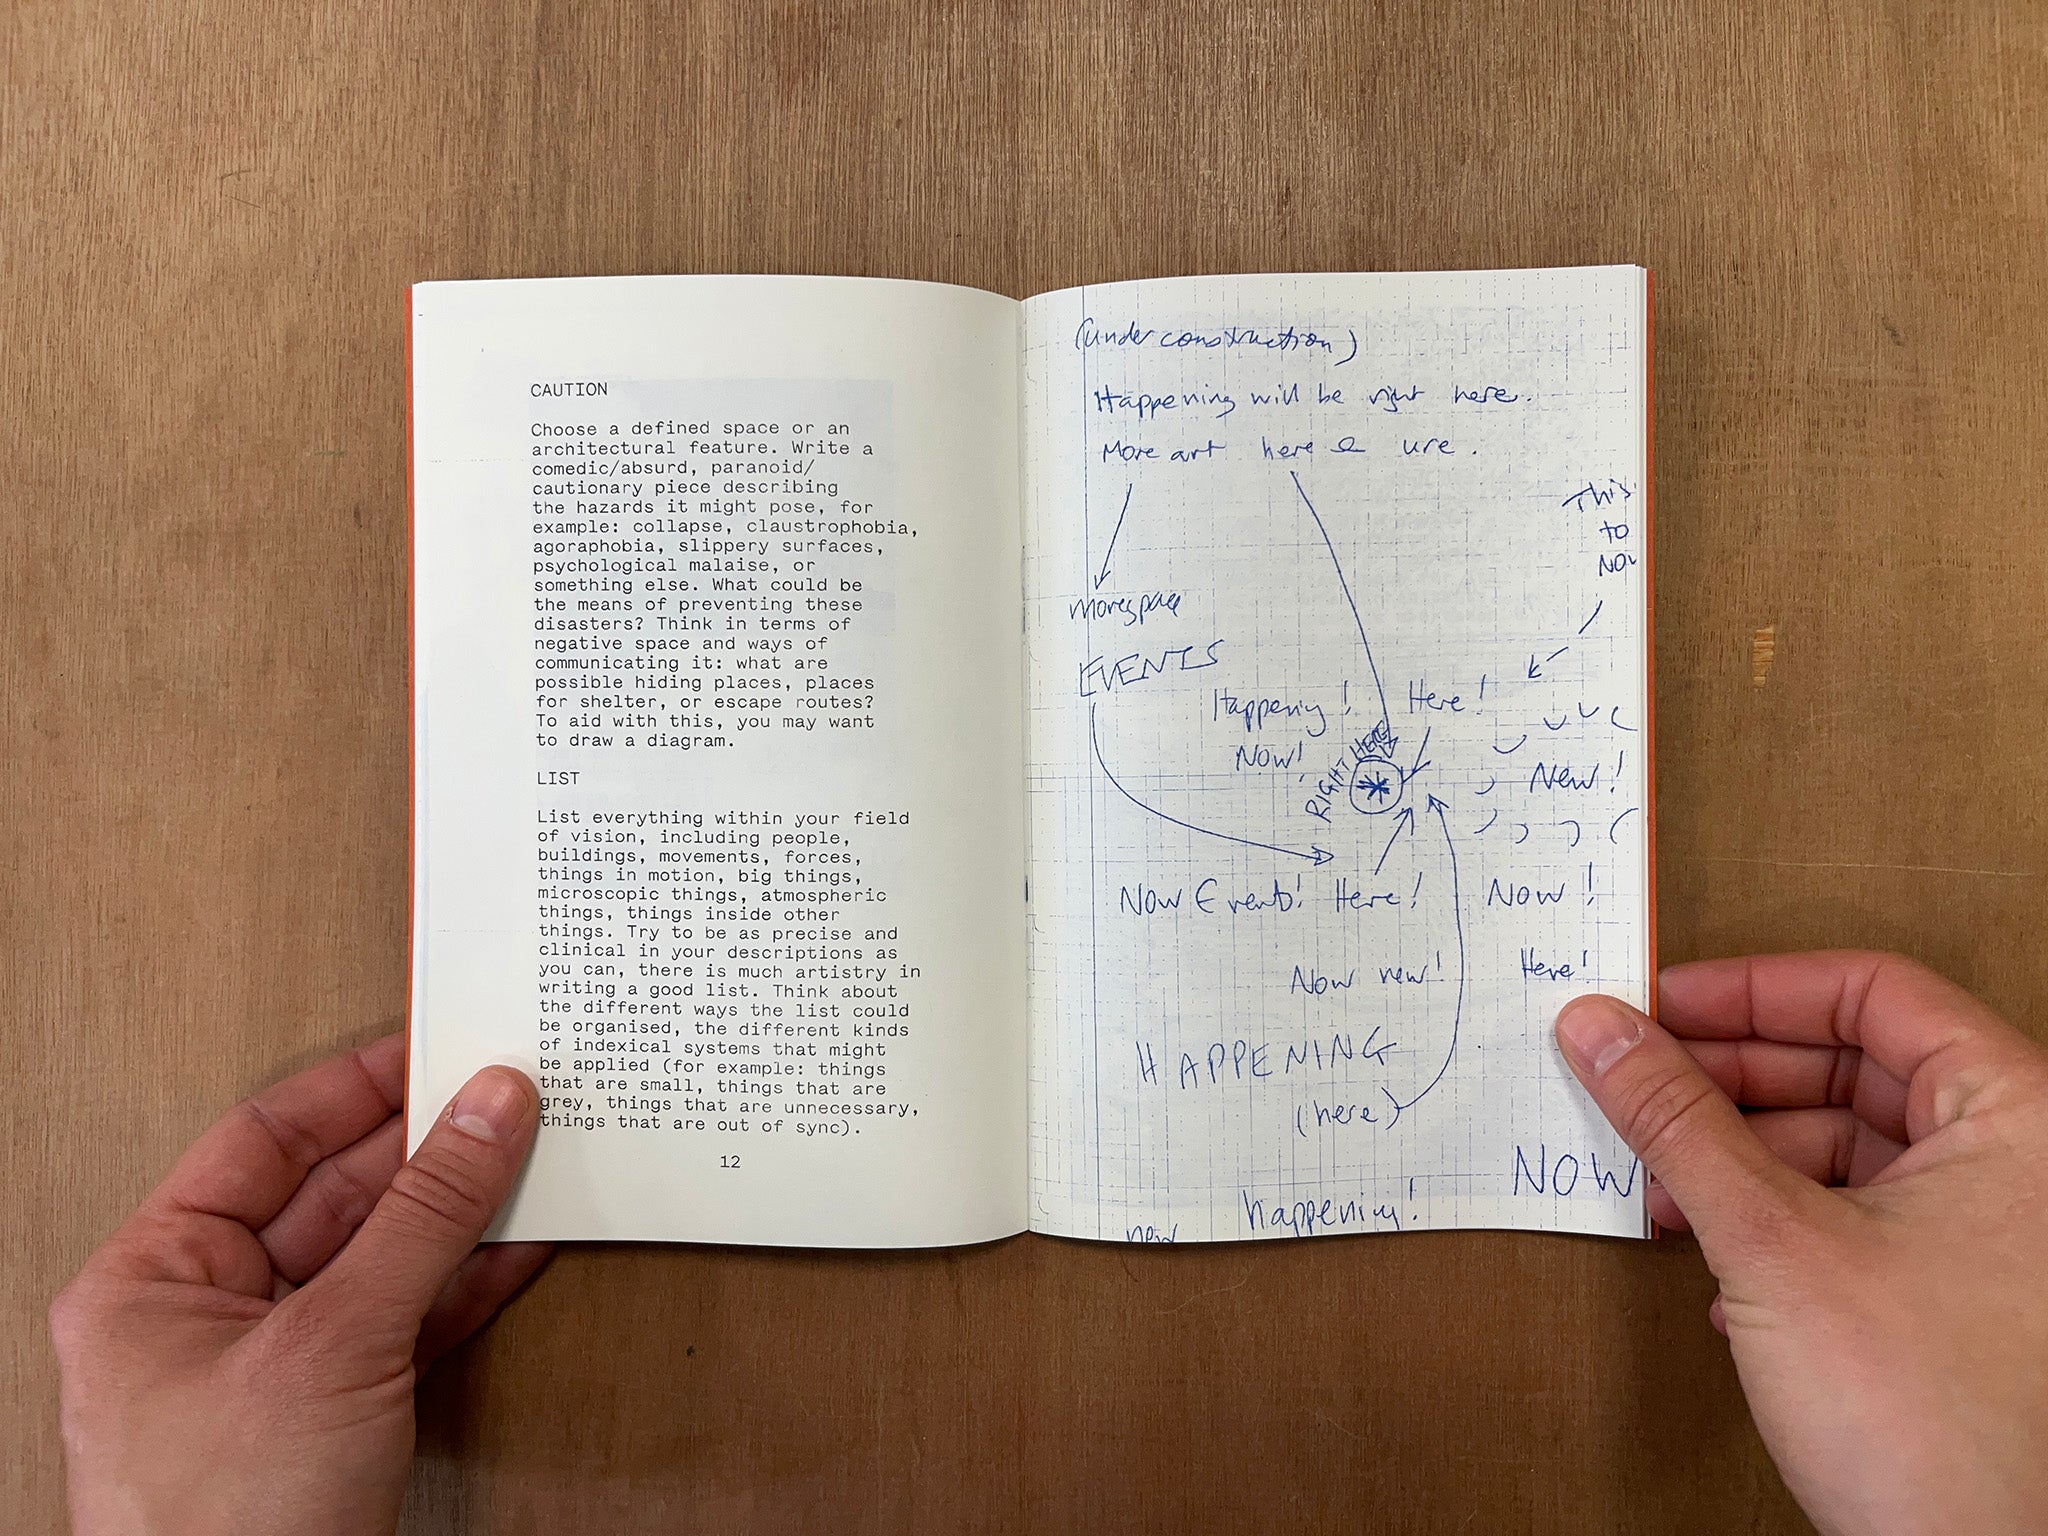 CAUTION
Choose a defined space or an
architectural feature. Write a
comedic/absurd, paranoid/
cautionary piece describing
the hazards it might pose, for
example: collapse, claustrophobia,
agoraphobia, slippery surfaces,
psychological malaise, or
something else. What could be
the means of preventing these
disasters? Think in terms of
negative space and ways of
communicating it: what are
possible hiding places, places
for shelter, or escape routes?
To aid with this, you may want
to draw a diagram.
LIST
List everything within your field
of vision, including people,
buildings, movements, forces,
things in motion, big things,
microscopic things, atmospheric
things, things inside other
things. Try to be as precise and
clinical in your descriptions as
you can, there is much artistry in
writing a good list. Think about
the different ways the list could
be organised, the different kinds
of indexical systems that might
be applied (for example: things
that are small, things that are
grey, things that are unnecessary,
things that are out of sync).
12
(under construction)
Happening will be right here.
More art here
This
to
morespace
EVENTS
Happening! Here!
Now!
RIGHT HERE
New!
Now Events! Here! Now!
Now new! Here!
HAPPENING
(here)
NOW
happening!
new